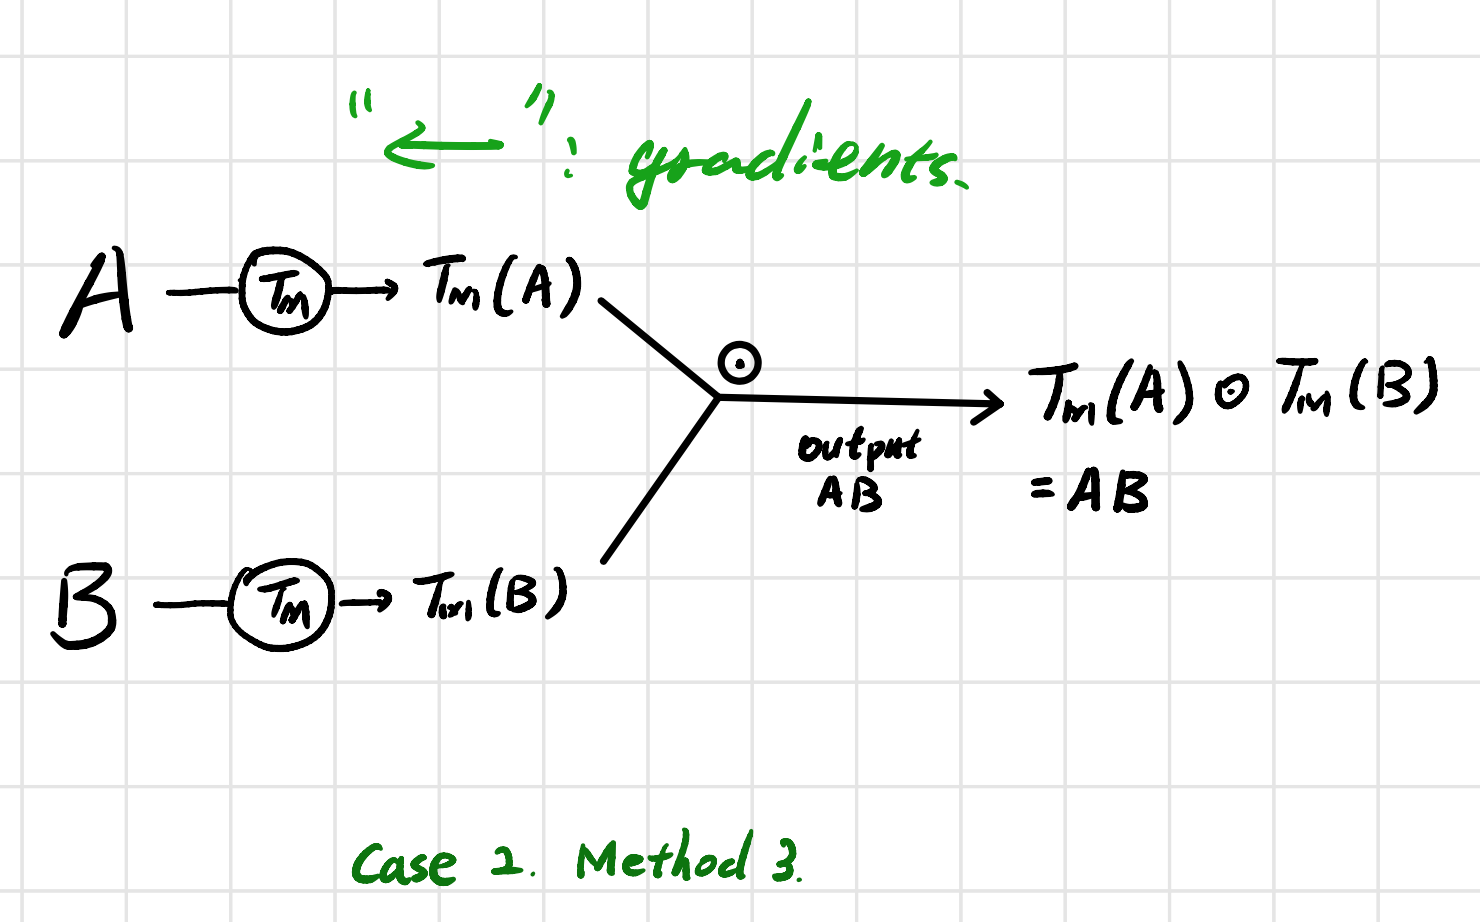 "←": gradients.
A — Tm → Tm(A)
⊙
output
AB
Tm(A) ⊙ Tm(B)
= AB
B — Tm → Tm(B)
Case 2. Method 3.